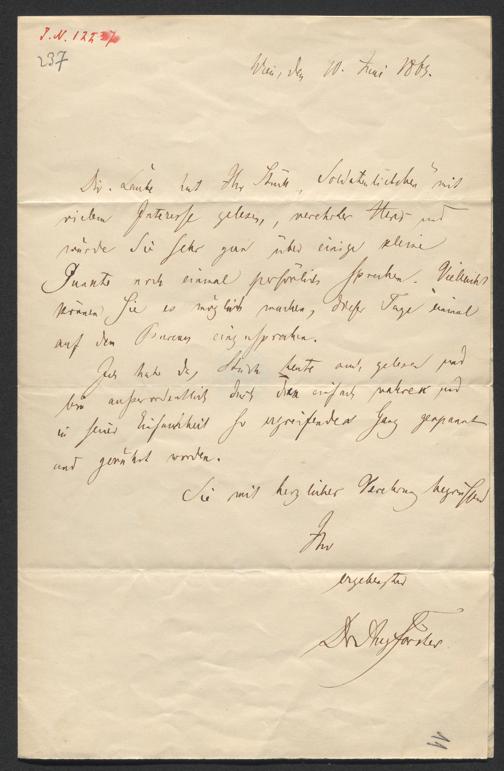 J.N. 12237
237
Wien, den 10. Juni 1863.
Dir. Laube hat Ihr Stück „Soldatenliebchen" mit
vielem Interesse gelesen, verehrter Herr und
würde Sie sehr gern über einige kleine
Punkte noch einmal persönlich sprechen. Vielleicht
können Sie es möglich machen, dieser Tage einmal
auf dem Bureau einzusprechen.
Ich habe das Stück heute auch gelesen und
bin außerordentlich durch den einfach wahren und
in seiner Einfachheit so ergreifenden Gang gespannt
und gerührt worden.
Sie mit herzlicher Verehrung begrüßend
Ihr
ergebenster
Dr Aug Förster
11